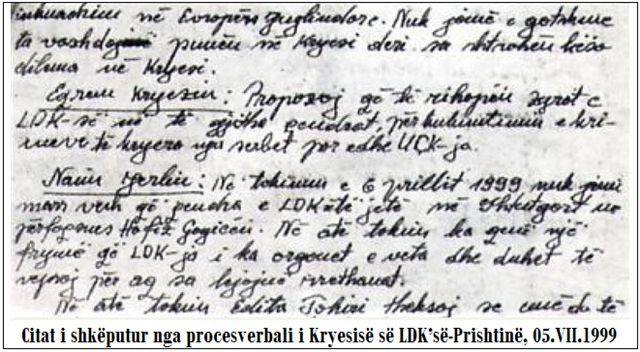 në Evropën Juglindore. Nuk janë e gatshme
ta vazhdojmë punën në Kryesi deri sa shtrohen këso
dilema në Kryesi.
Egrem Kryeziu: Propozoj që të rihapën zyrat e
LDK-së në të gjitha qendrat, për hulumtimin e kri-
meve të kryera nga serbet por edhe UÇK-ja.
Naim Jerliu: Në takimin e 6 prillit 1999 nuk jemi
marr vesh që qendra e LDK të jetë në Shtutgart
përfaqsues Hafiz Gagicën. Në atë takim ka qenë një
frymë që LDK-ja i ka organet e veta dhe duhet të
veproj për aq sa lejojnë rrethanat.
Në atë takim Edita Tahiri theksoj se unë do të
Citat i shkëputur nga procesverbali i Kryesisë së LDK'së-Prishtinë, 05.VII.1999